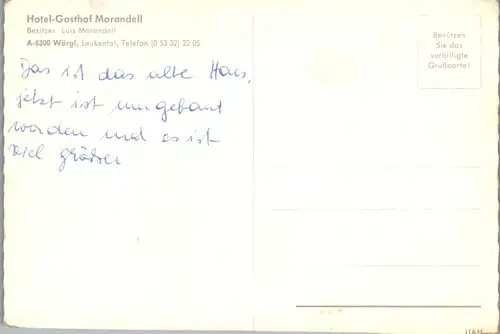 Hotel-Gasthof Morandell
Besitzer: Luis Morandell
A-6300 Wörgl, Leukental, Telefon (0 53 32) 22 05
Benützen
Sie das
verbilligte
Grußporto!
Das ist das alte Haus,
jetzt ist umgebaut
worden und es ist
viel größer